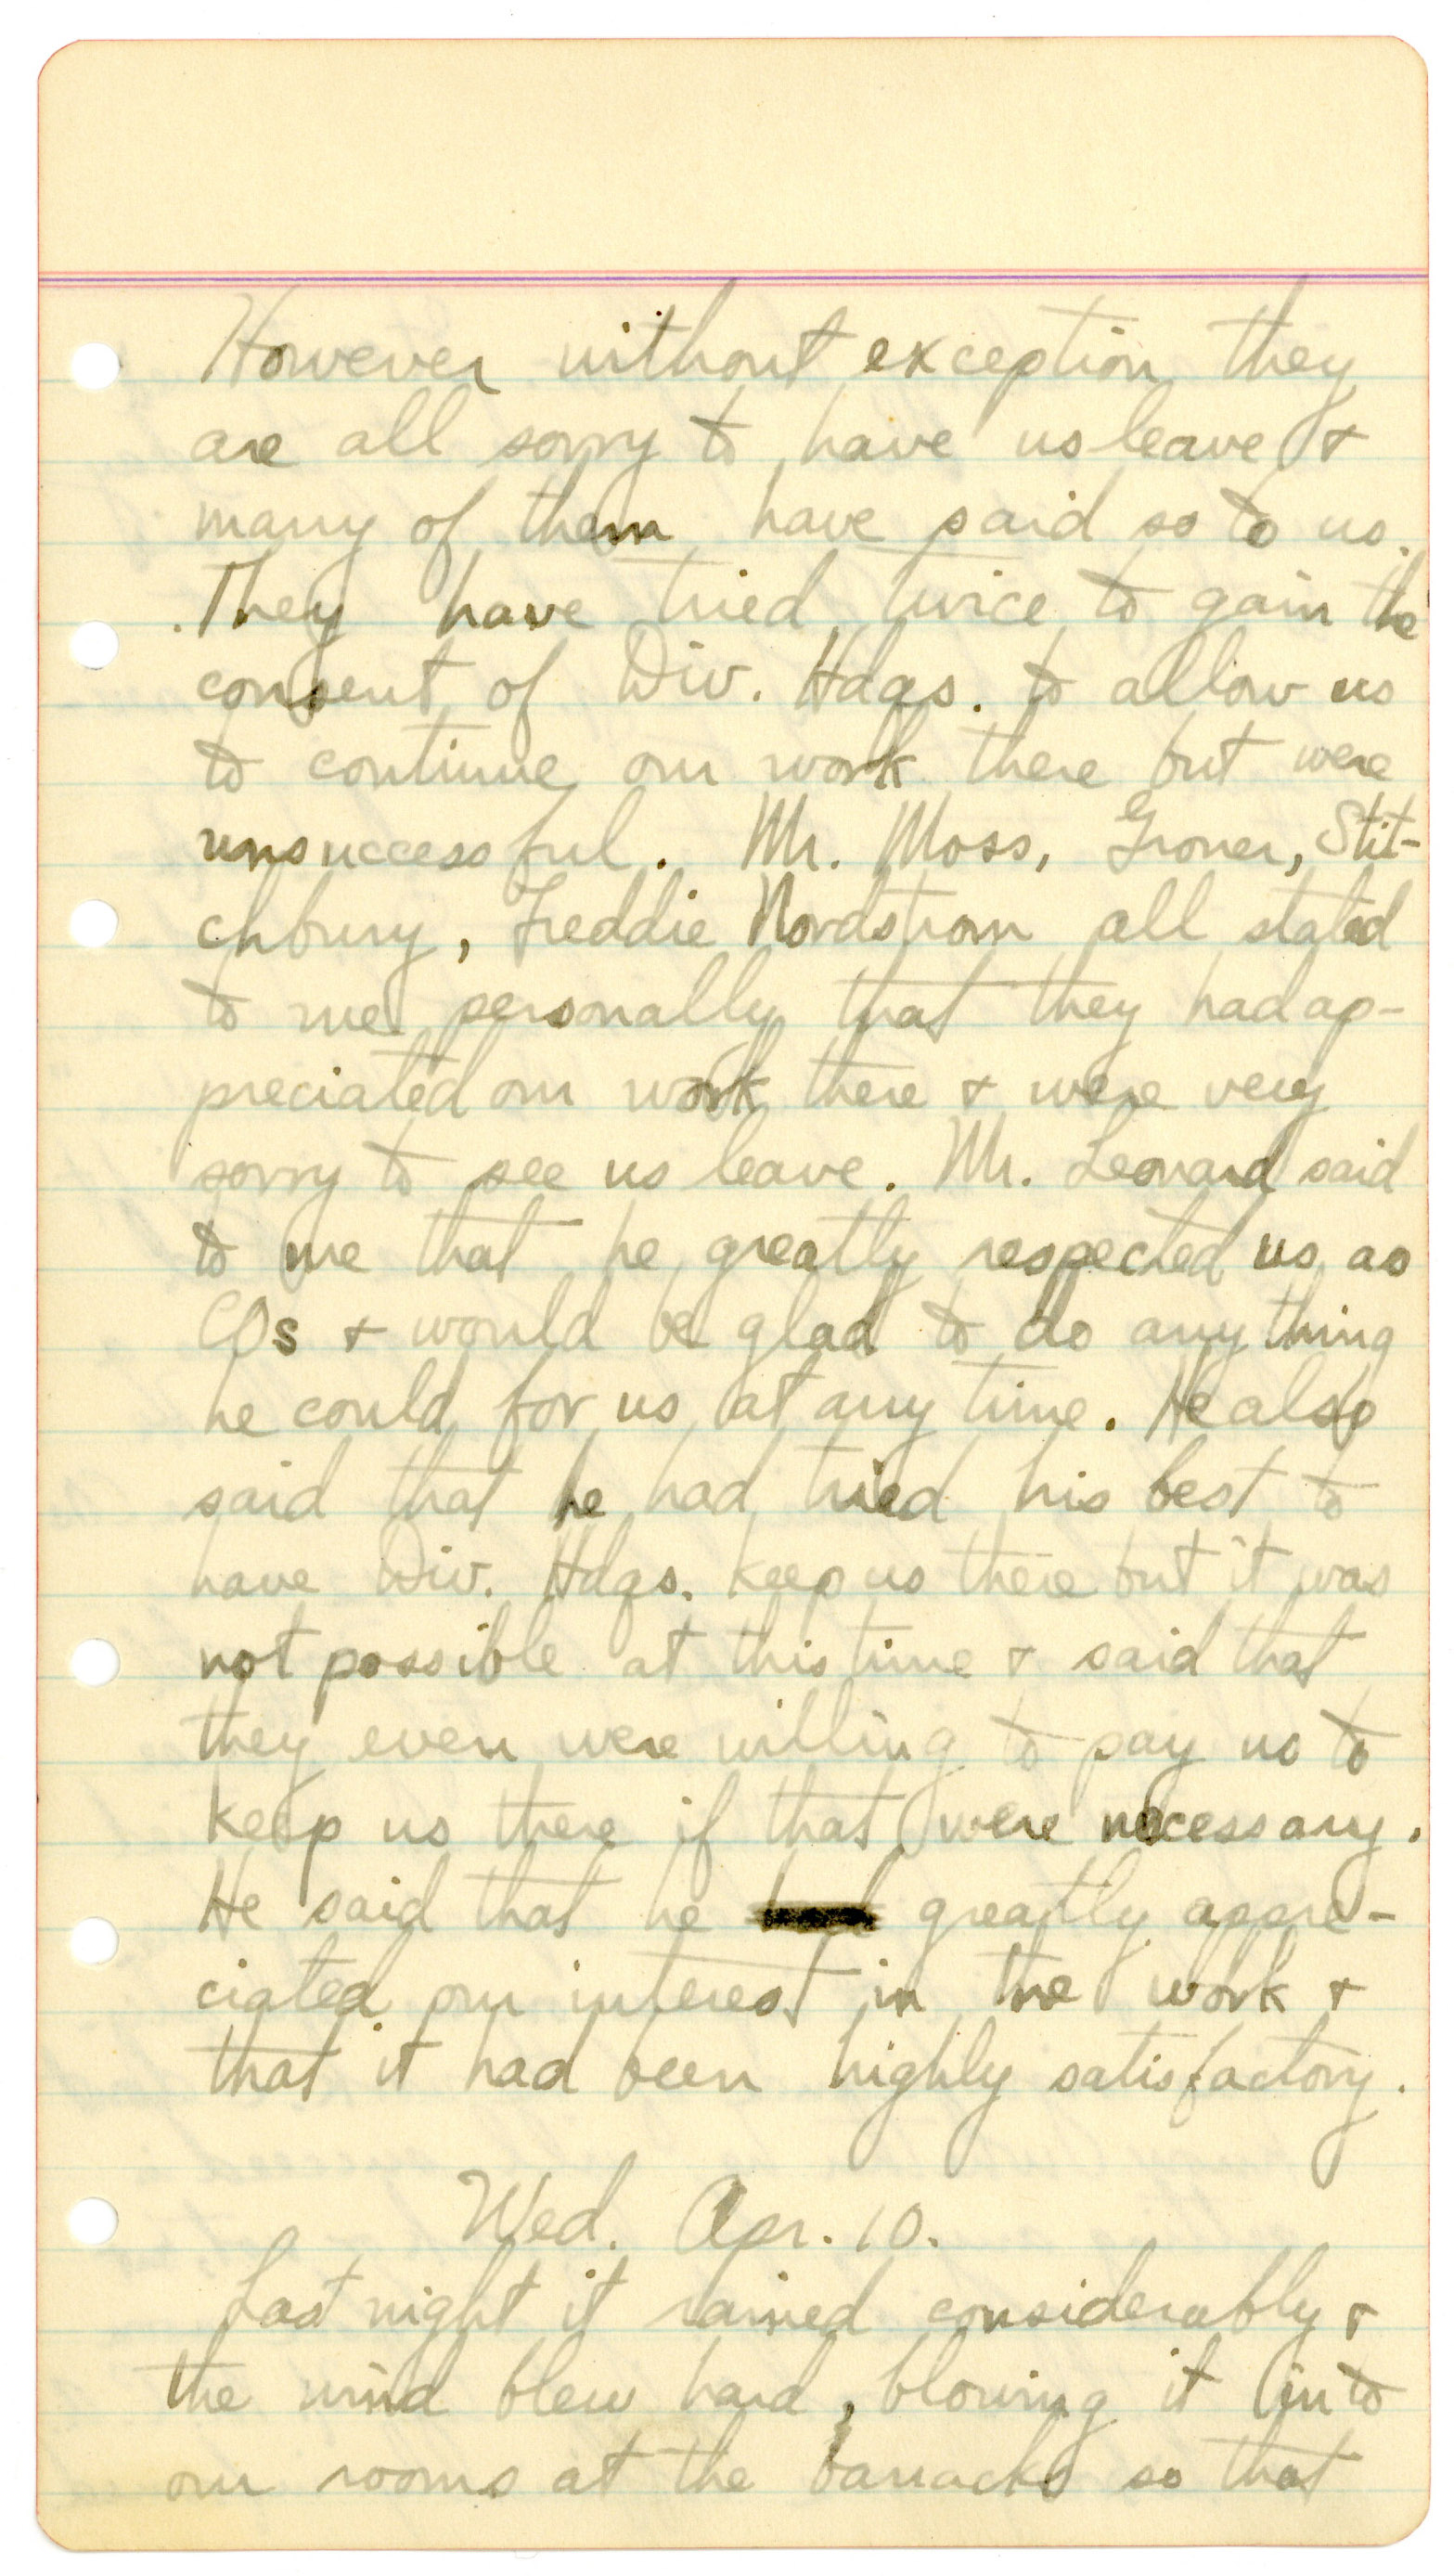 However without exception they
are all sorry to have us leave &
many of them have said so to us.
They have tried twice to gain the
consent of Div. Hdqs. to allow us
to continue our work there but were
unsuccessful. Mr. Moss, Groner, Stit-
chbury, Freddie Nordstrom all stated
to me personally that they had ap-
preciated our work there & were very
sorry to see us leave. Mr. Leonard said
to me that he greatly respected us as
COs & would be glad to do anything
he could for us at any time. He also
said that he had tried his best to
have Div. Hdqs. keep us there but it was
not possible at this time & said that
they even were willing to pay us to
keep us there if that were necessary.
He said that he greatly appre-
ciated our interest in the work &
that it had been highly satisfactory.
Wed. Apr. 10.
Last night it rained considerably &
the wind blew hard, blowing it into
our rooms at the barracks so that